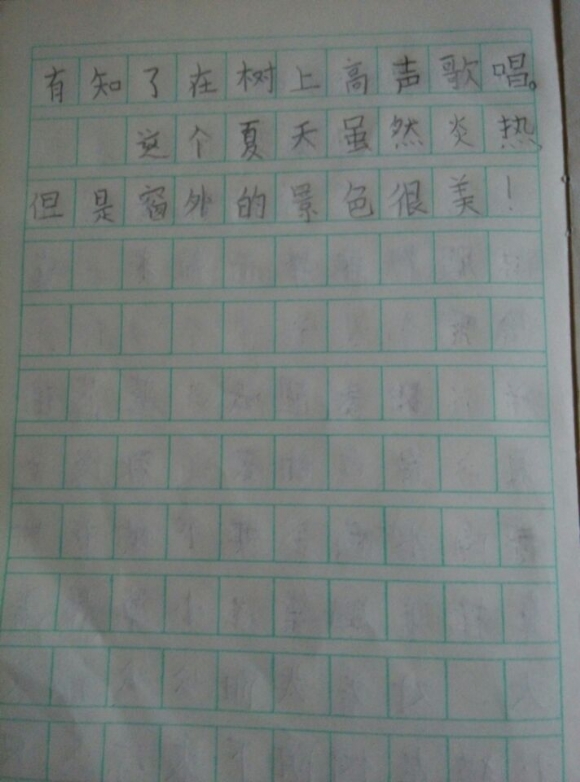 有知了在树上高声歌唱。
这个夏天虽然炎热
但是窗外的景色很美！